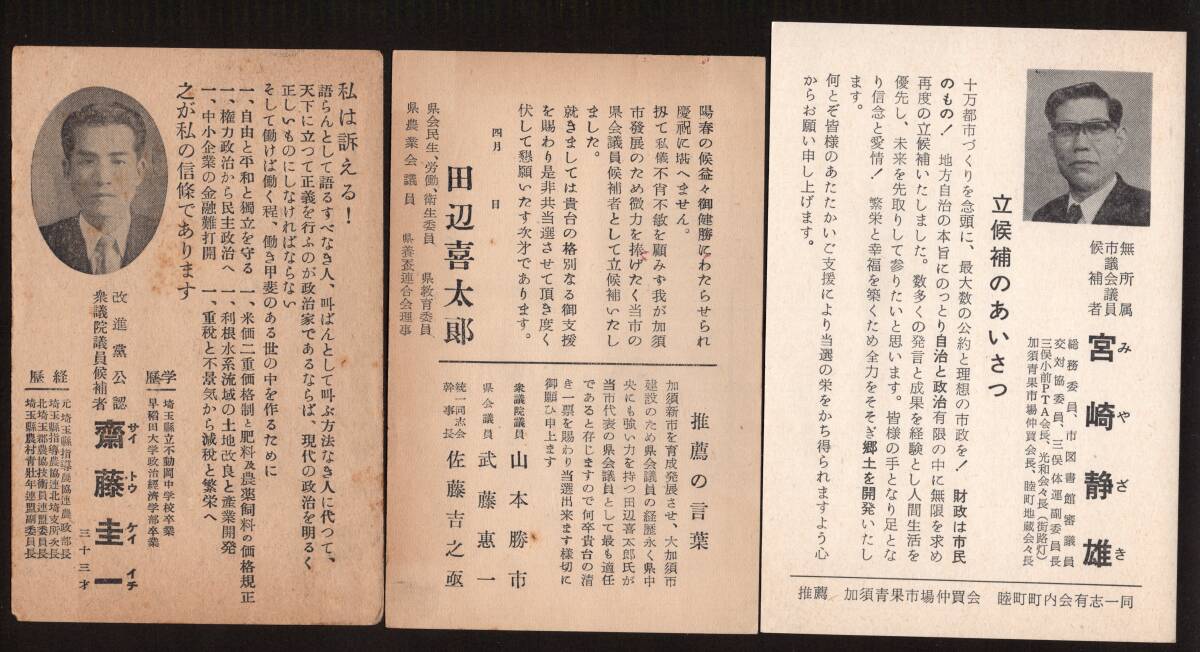 無所属
市議会議員
候補者
宮崎静雄
みやざき
総務委員、市図書館審議員
交対協委員、三俣体運副委員長
三俣小前PTA会長、光和会々長（街路灯）
加須青果市場仲買会長、睦町地蔵会々長
立候補のあいさつ
十万都市づくりを念頭に、最大数の公約と理想の市政を！　財政は市民
のもの！　地方自治の本旨にのっとり自治と政治有限の中に無限を求め
再度の立候補いたしました。数多くの発言と成果を経験とし人間生活を
優先し、未来を先取りして参りたいと思います。皆様の手となり足とな
り信念と愛情！　繁栄と幸福を築くため全力をそそぎ郷土を開発いたし
ます。
何とぞ皆様のあたたかいご支援により当選の栄をかち得られますよう心
からお願い申し上げます。
推薦　加須青果市場仲買会　睦町町内会有志一同
陽春の候益々御健勝にわたらせられ
慶祝に堪へません。
扨て私儀不肖不敏を顧みず我が加須
市発展のため微力を捧げたく当市の
県会議員候補者として立候補いたし
ました。
就きましては貴台の格別なる御支援
を賜わり是非共当選させて頂き度く
伏して懇願いたす次才であります。
四月　日
田辺喜太郎
県会民生、労働、衛生委員　県教育委員
県農業会議員　県養蚕連合会理事
推薦の言葉
加須新市を育成発展させ、大加須市
建設のため県会議員の経歴永く県中
央にも強い力を持つ田辺喜太郎氏が
当市代表の県会議員として最も適任
であると存じますので何卒貴台の清
き一票を賜わり当選出来ます様切に
御願ひ申上ます
衆議院議員　山本勝市
県会議員　武藤惠一
統一同志会
幹事長　佐藤吉之亟
私は訴える！
語らんとして語るすべなき人、叫ばんとして叫ぶ方法なき人に代つて、
天下に立つて正義を行ふのが政治家であるならば、現代の政治を明るく
正しいものにしなければならない
そして働けば働く程、働き甲斐のある世の中を作るために
一、自由と平和と獨立を守る　一、米価二重価格制と肥料及農薬飼料の価格規正
一、権力政治から民主政治へ　一、利根水系流域の土地改良と産業開発
一、中小企業の金融難打開　一、重税と不景気から減税と繁栄へ
之が私の信條であります
改進黨公認
衆議院議員候補者
齋藤圭一
サイトウケイイチ
三十三才
学歴
埼玉縣立不動岡中学校卒業
早稲田大学政治經済学部卒業
経歴
元埼玉縣指導農協連農政部長
埼玉縣指導農協連北埼支所次長
北埼玉郡農協技術員連盟委員長
埼玉縣農村青壯年連盟副委員長